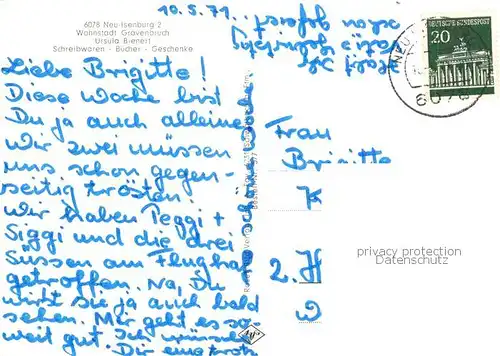 10.5.71.
6078 Neu-Isenburg 2
Wohnstadt Gravenbruch
Ursula Bienert
Schreibwaren - Bücher - Geschenke
Liebe Brigitte!
Diese Woche bist
Du ja auch alleine
wir zwei müssen
uns schon gegen-
seitig trösten!
Wir haben Peggi +
Siggi und die drei
Süssen am Flughafen
getroffen. Na, Du
wirst sie ja auch bald
sehen. Mir geht es so
weit gut.
Dir eine
schon gefeiert.
DEUTSCHE BUNDESPOST
20
NEU
6078
Frau
Brigitte
K
2. H
W
privacy protection
Datenschutz